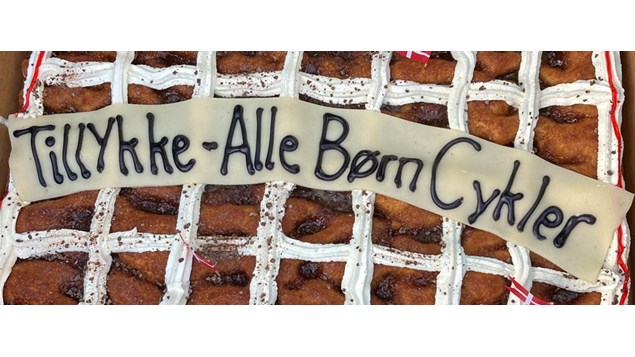 Tillykke - Alle Børn Cykler